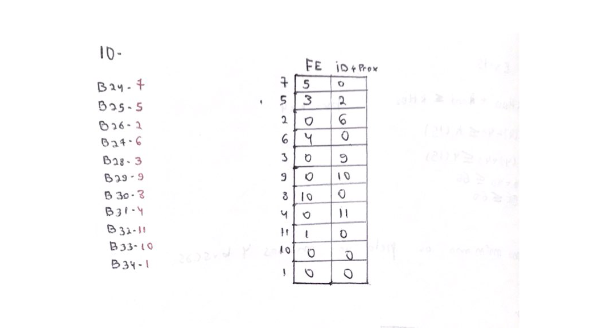 10-
B24-7
B25-5
B26-2
B27-6
B28-3
B29-9
B30-8
B31-4
B32-11
B33-10
B34-1
FE iD+Prox
7 5 0
5 3 2
2 0 6
6 4 0
3 0 9
9 0 10
8 10 0
4 0 11
11 1 0
10 0 0
1 0 0